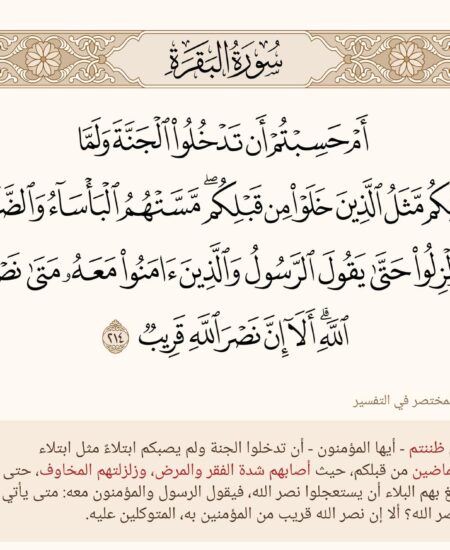 سُورَةُ البَقَرَةِ
أَمۡ حَسِبۡتُمۡ أَن تَدۡخُلُواْ ٱلۡجَنَّةَ وَلَمَّا
مَّثَلُ ٱلَّذِينَ خَلَوۡاْ مِن قَبۡلِكُمۖ مَّسَّتۡهُمُ ٱلۡبَأۡسَآءُ
حَتَّىٰ يَقُولَ ٱلرَّسُولُ وَٱلَّذِينَ ءَامَنُواْ مَعَهُۥ مَتَىٰ
ٱللَّهِۗ أَلَآ إِنَّ نَصۡرَ ٱللَّهِ قَرِيبٞ ٢١٤
المختصر في التفسير
ظننتم - أيها المؤمنون - أن تدخلوا الجنة ولم يصبكم ابتلاءٌ مثل ابتلاء
من قبلكم، حيث أصابهم شدة الفقر والمرض، وزلزلتهم المخاوف، حتى
بهم البلاء أن يستعجلوا نصر الله، فيقول الرسول والمؤمنون معه: متى يأتي
الله؟ ألا إن نصر الله قريب من المؤمنين به، المتوكلين عليه.